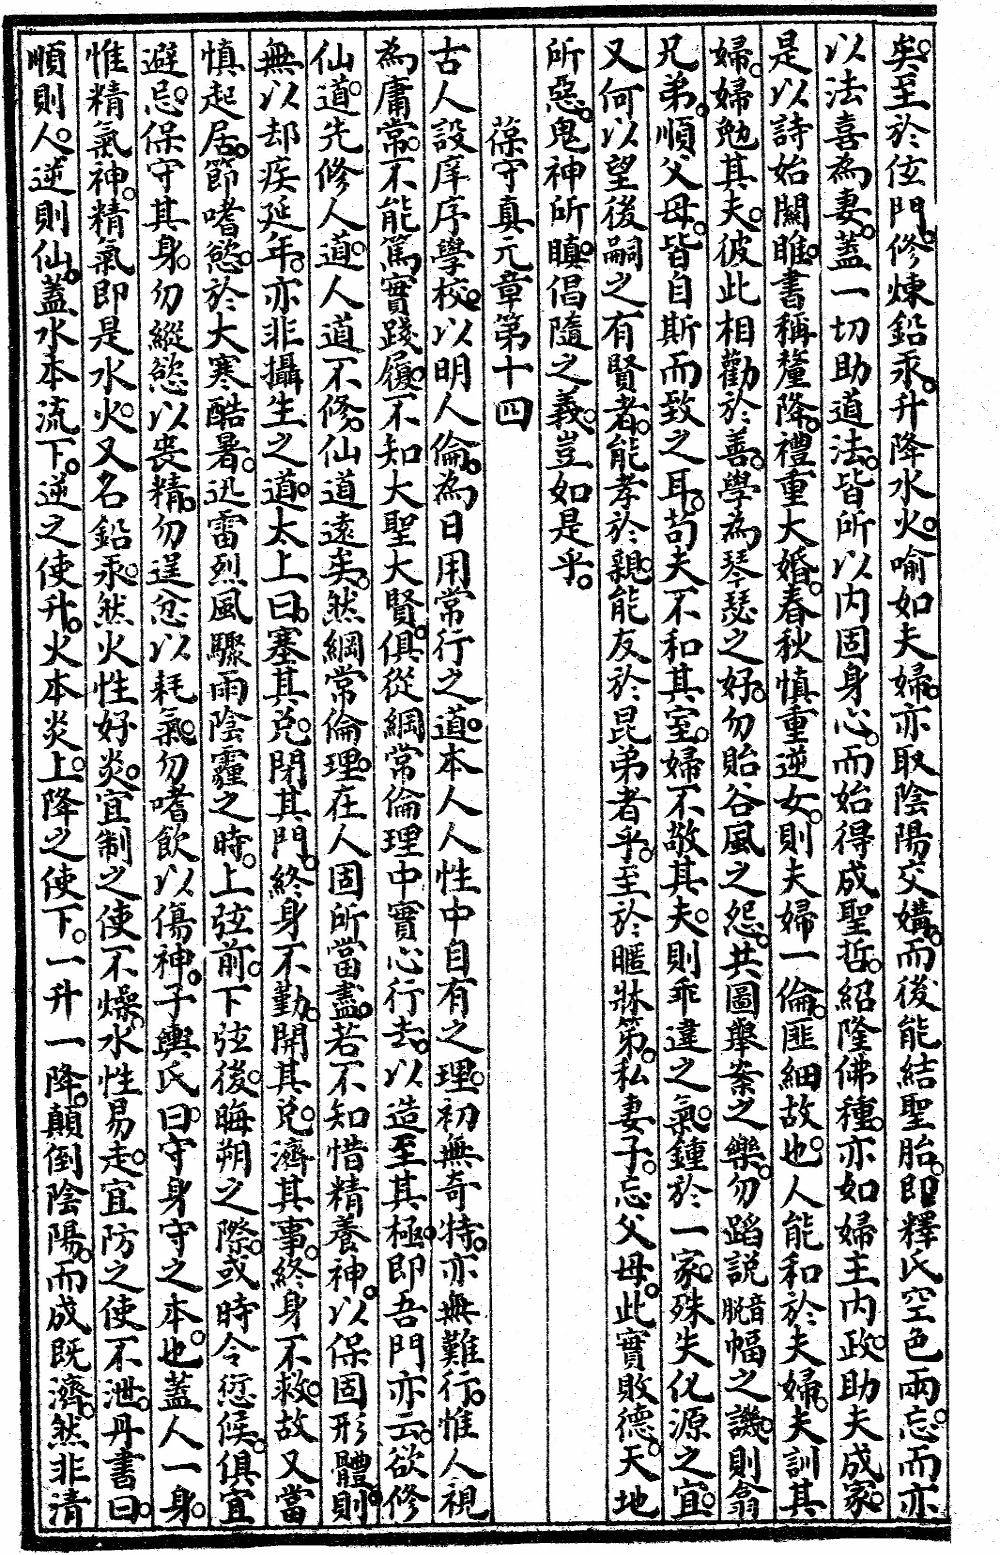 矣。至於伭門。修煉鉛汞。升降水火。喻如夫婦。亦取陰陽交媾。而後能結聖胎。即釋氏空色兩忘。而亦
以法喜為妻。蓋一切助道法。皆所以內固身心。而始得成聖哲。紹隆佛種。亦如婦主內政。助夫成家。
是以詩始關睢。書稱釐降。禮重大婚。春秋慎重逆女。則夫婦一倫。匪細故也。人能和於夫婦。夫訓其
婦。婦勉其夫。彼此相勸於善。學為琴瑟之好。勿貽谷風之怨。共圖舉案之樂。勿蹈說音脫幅之譏。則翕
兄弟。順父母。皆自斯而致之耳。苟夫不和其室。婦不敬其夫。則乖違之氣。鍾於一家。殊失化源之宜。
又何以望後嗣之有賢者。能孝於親。能友於昆弟者乎。至於暱牀第。私妻子。忘父母。此實敗德。天地
所惡。鬼神所瞋。倡隨之義。豈如是乎。
葆守真元章第十四
古人設庠序學校。以明人倫。為日用常行之道。本人人性中自有之理。初無奇特。亦無難行。惟人視
為庸常。不能篤實踐履。不知大聖大賢。俱從綱常倫理中實心行去。以造至其極。即吾門亦云。欲修
仙道。先修人道。人道不修。仙道遠矣。然綱常倫理。在人固所當盡。若不知惜精養神。以保固形體。則
無以却疾延年。亦非攝生之道。太上曰。塞其兌。閉其門。終身不勤。開其兌。濟其事。終身不救。故又當
慎起居。節嗜慾。於大寒酷暑。迅雷烈風。驟雨陰霾之時。上弦前。下弦後。晦朔之際。或時令愆候。俱宜
避忌。保守其身。勿縱慾以喪精。勿逞忿以耗氣。勿嗜飲以傷神。子輿氏曰。守身守之本也。蓋人一身。
惟精氣神。精氣即是水火。又名鉛汞。然火性好炎。宜制之使不燥。水性易走。宜防之使不泄。丹書曰。
順則人。逆則仙。蓋水本流下。逆之使升。火本炎上。降之使下。一升一降。顛倒陰陽。而成既濟。然非清